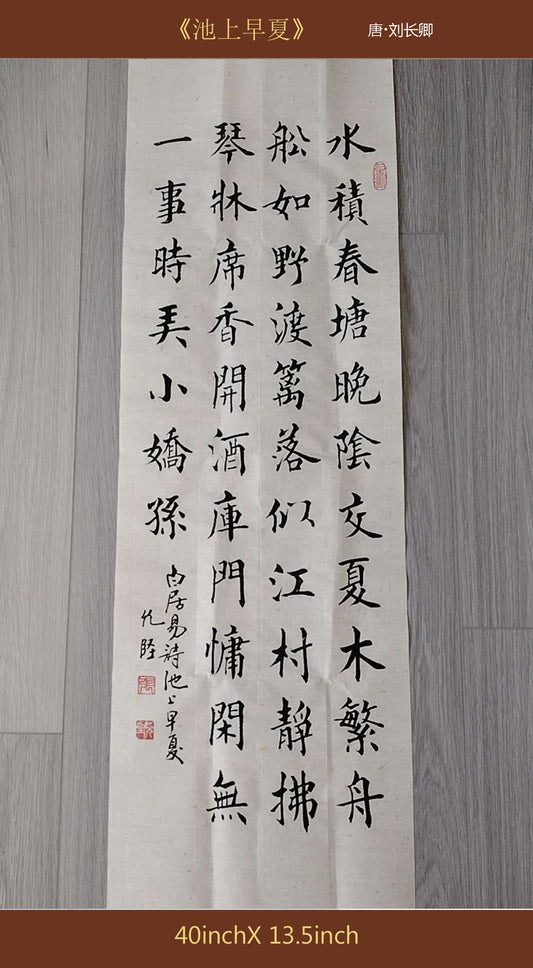 《池上早夏》
唐·刘长卿
水積春塘晚陰交夏木繁舟
舩如野渡篱落似江村靜拂
琴牀席香開酒庫門慵閑無
一事時弄小嬌孫
白居易詩池上早夏
40inchX 13.5inch